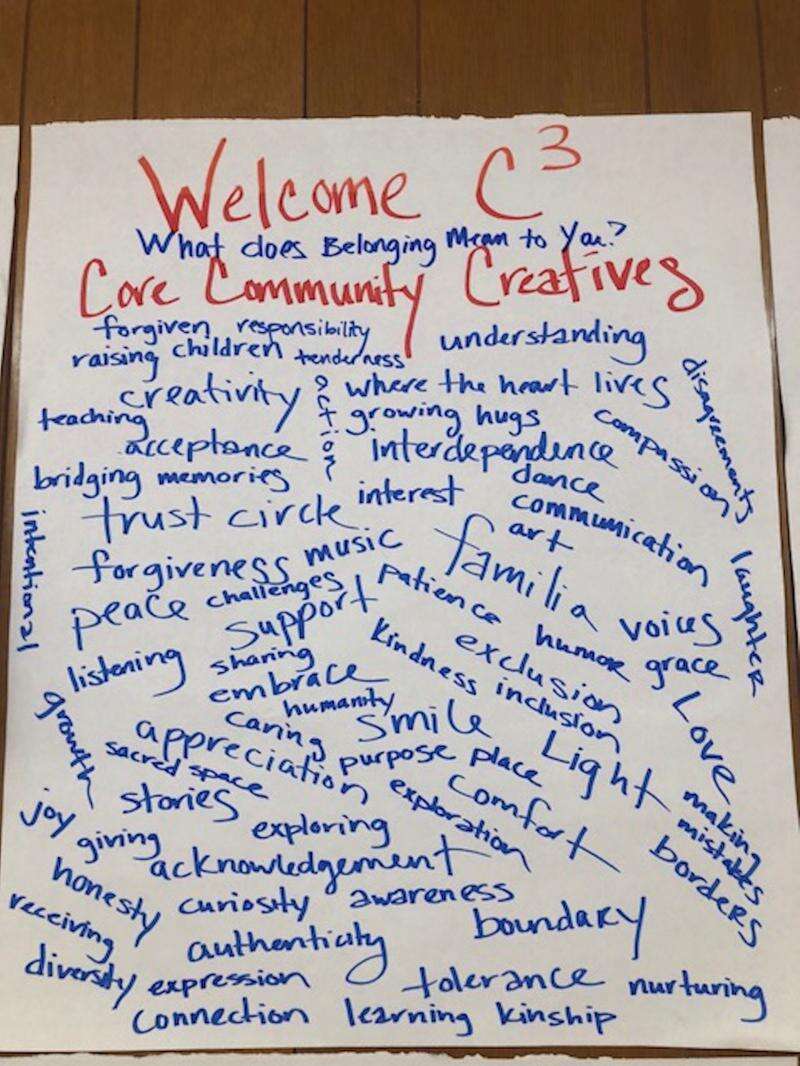 Welcome C³
What does Belonging Mean to You?
Core Community Creatives
forgiven responsibility
raising children tenderness
understanding
creativity
action
where the heart lives
disagreements
teaching
growing hugs
compassion
acceptance
interdependence
bridging memories
interest
dance
communication
trust circle
art
intentional
forgiveness
music
familia
laughter
peace
challenges
patience
voices
support
humor
grace
listening
sharing
kindness
exclusion
inclusion
embrace
humanity
growth
caring
smile
Love
appreciation
purpose place
Light
sacred space
comfort
making mistakes
stories
exploration
joy
giving
exploring
borders
acknowledgement
honesty
curiosity awareness
receiving
boundary
authenticity
diversity expression
tolerance nurturing
connection learning kinship